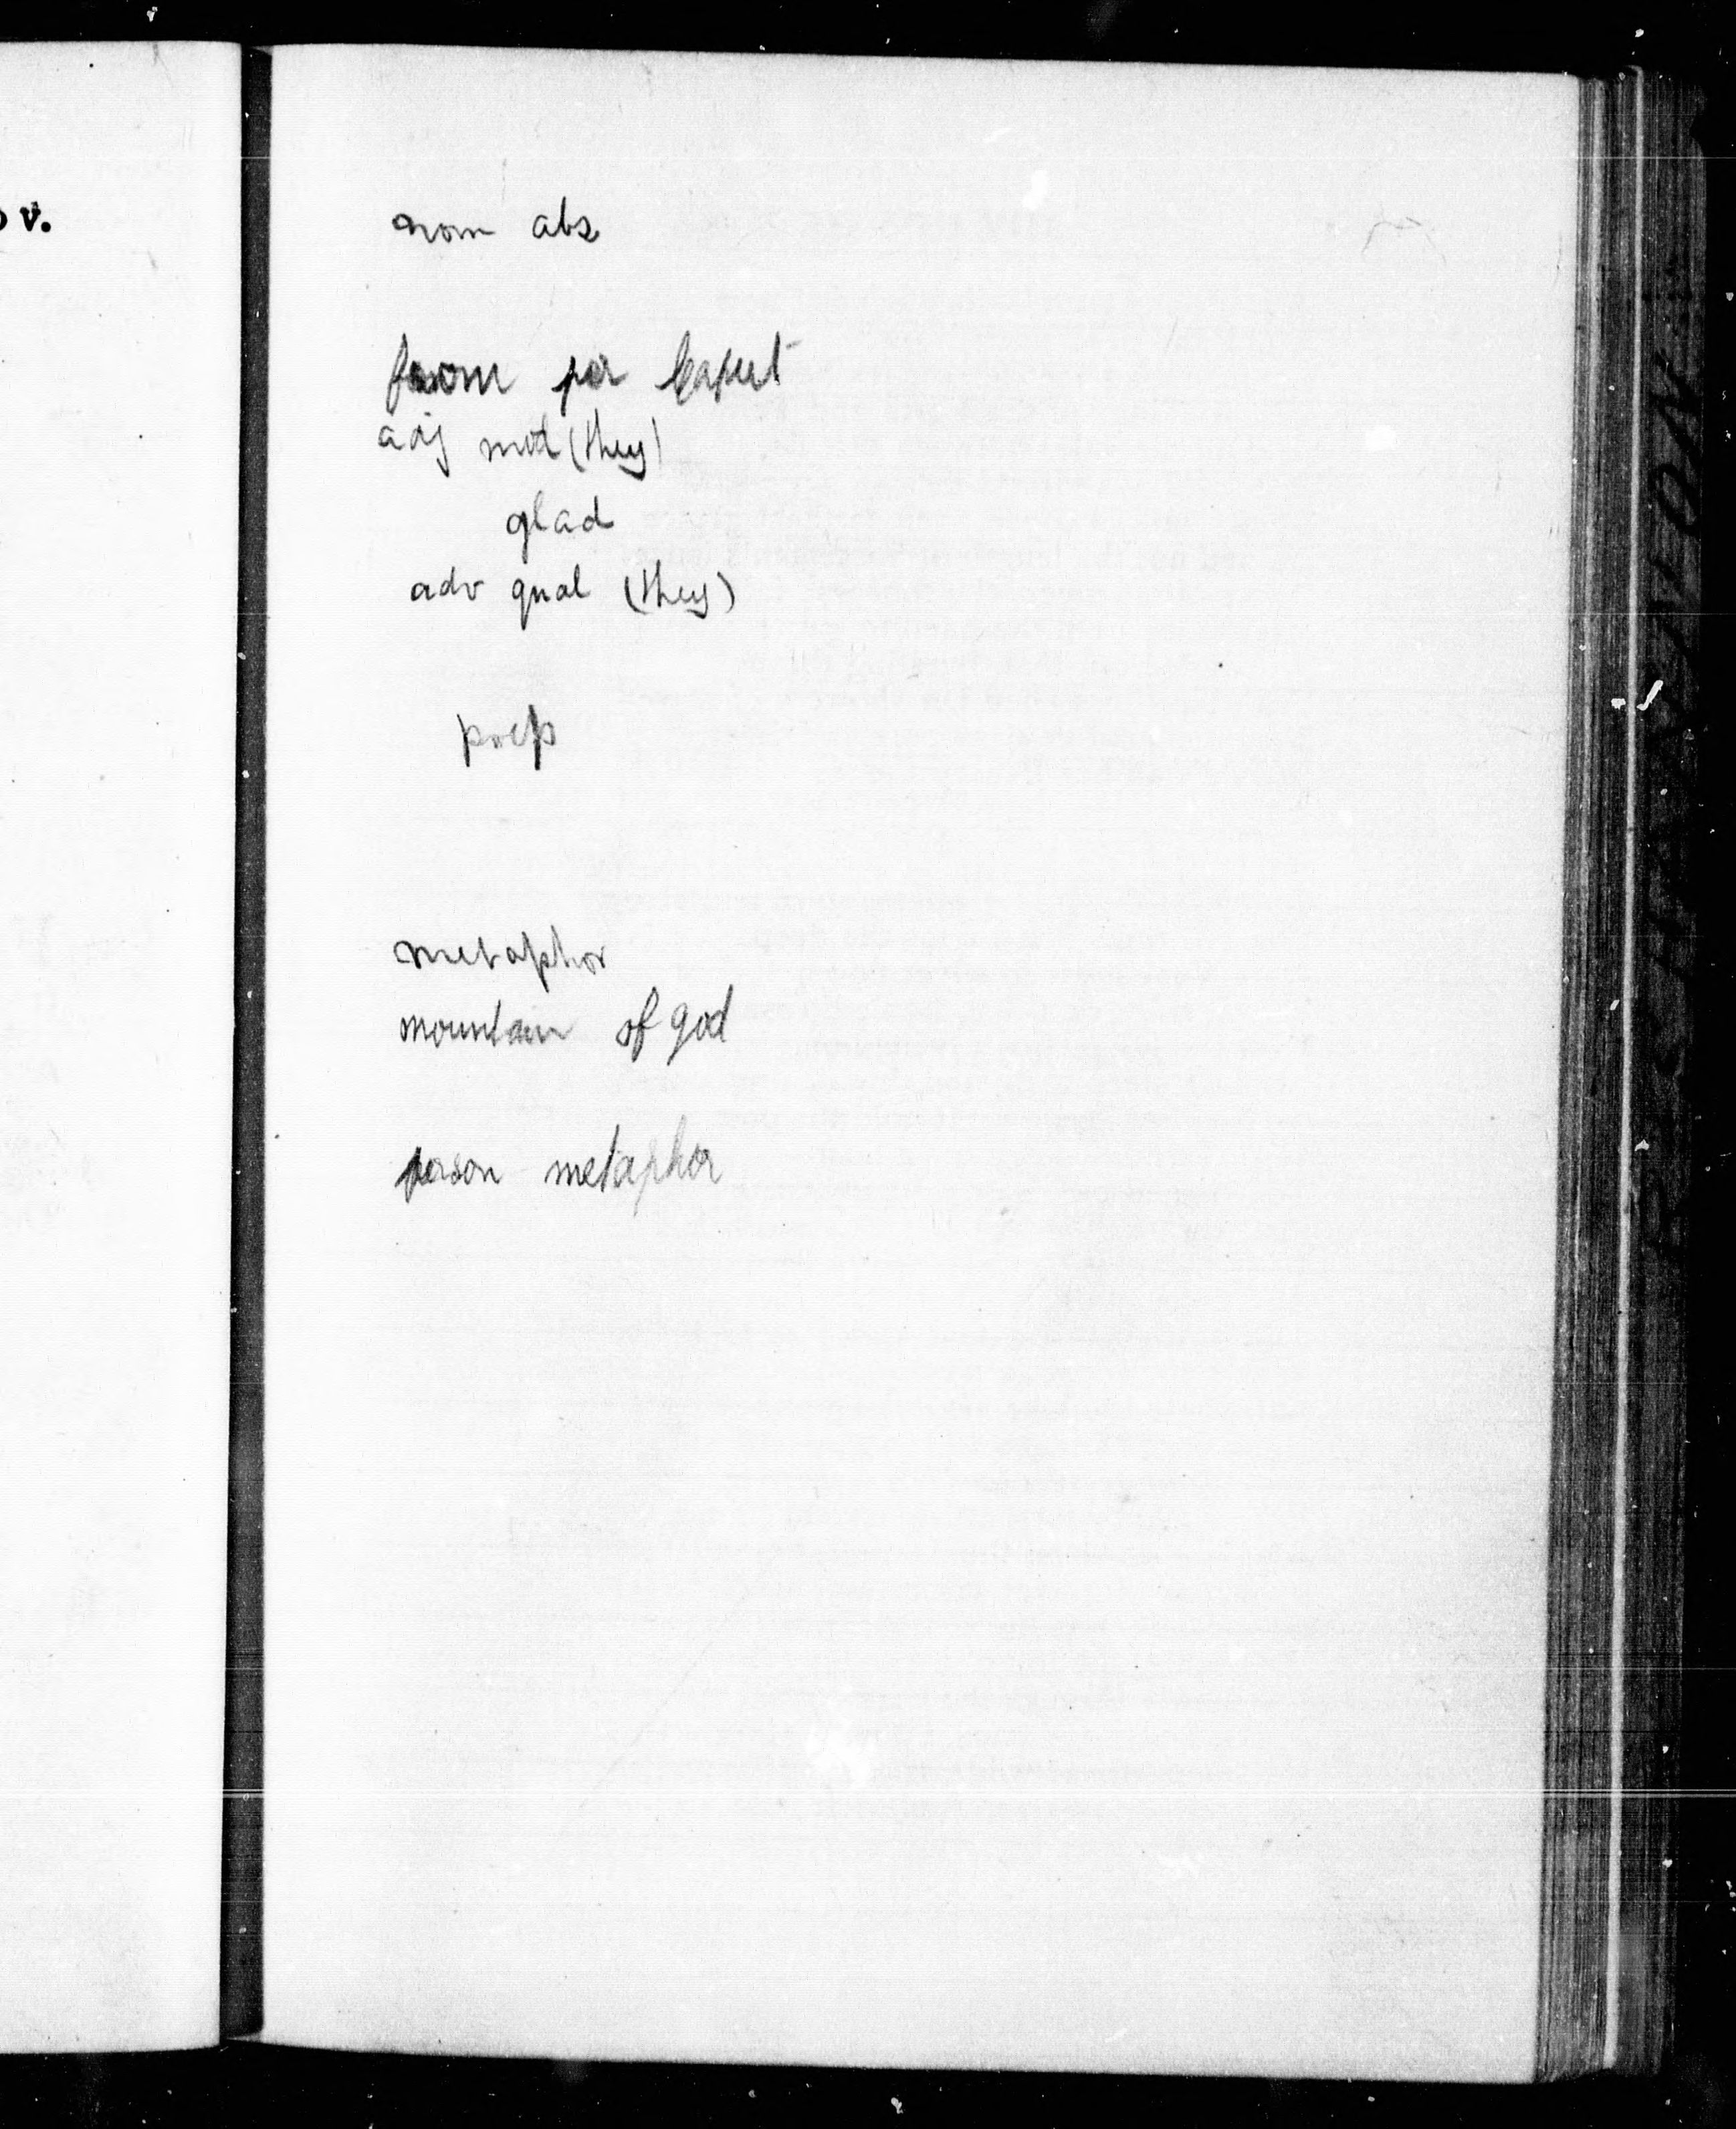 v.
nom abs
per
adj mod (they)
glad
adv qual (they)
prep
metaphor
mountain of god
person metaphor